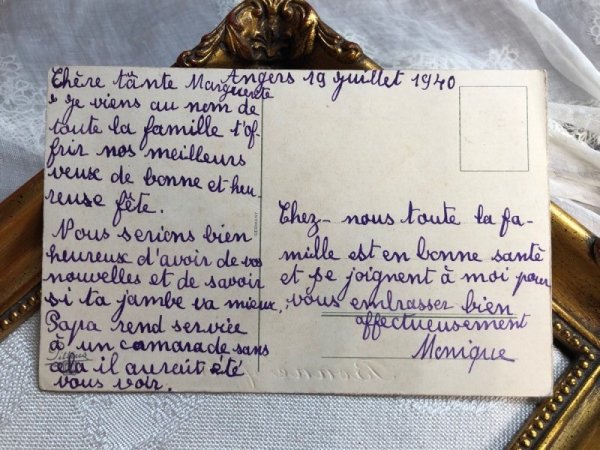 Angers 19 juillet 1940
Chère tânte Marguerite
je viens au nom de
toute la famille t'of-
frir nos meilleurs
veux de bonne et heu-
reuse fête.
Nous serions bien
heureux d'avoir de vos
nouvelles et de savoir
si ta jambe va mieux.
Papa rend service
à un camarade sans
cela il aurait été
vous voir.
GERMANY
Chez-nous toute la fa-
mille est en bonne santé
et se joignent à moi pour
vous embrasser bien
affectueusement
Monique